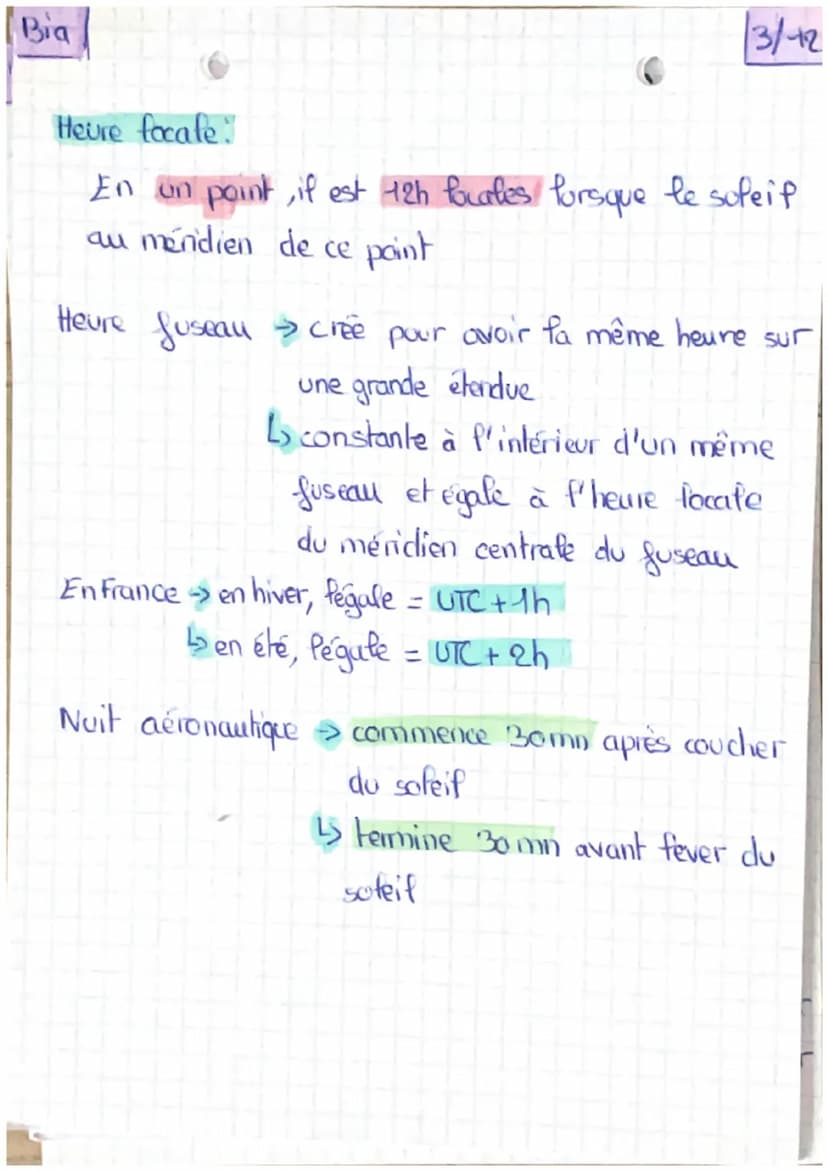 Bia
3/12
Heure locale:
En un point, il est 12h locales lorsque le soleil
au méridien de ce point
Heure fuseau → créé pour avoir la même heure sur
une grande étendue
↳ constante à l'intérieur d'un même
fuseau et égale à l'heure locale
du méridien centrale du fuseau
En France → en hiver, légale = UTC + 1h
↳ en été, légale = UTC + 2h
Nuit aéronautique → commence 30mn après coucher
du soleil
↳ termine 30mn avant lever du
soleil